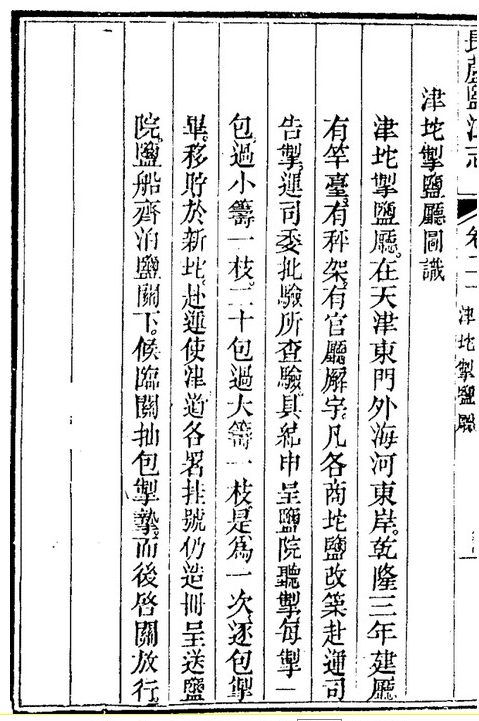 長蘆鹽法志
卷二
津坨掣鹽廳
津坨掣鹽廳圖識
津坨掣鹽廳在天津東門外海河東岸乾隆三年建廳
有竿臺有秤架有官廳廨宇凡各商坨鹽改築赴運司
告掣運司委批驗所查驗具紇申呈鹽院聽掣每掣一
包過小籌一枝二十包過大籌一枝是爲一次逐包掣
畢移貯於新坨赴運使津道各署挂號仍造冊呈送鹽
院鹽船齊泊鹽關下候臨關抽包掣摯而後啓關放行